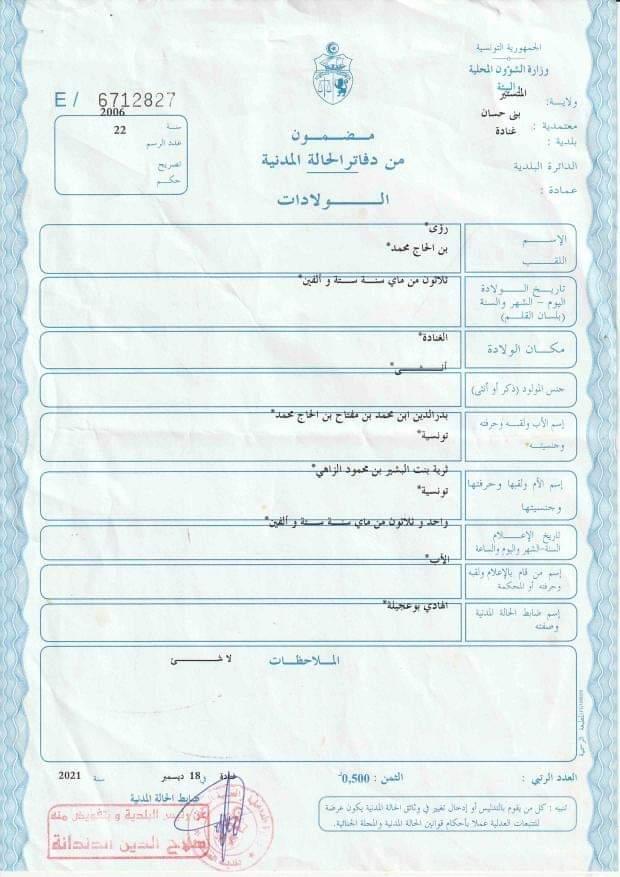 الجمهورية التونسية
وزارة الشؤون المحلية
والبيئة
ولاية: المنستير
معتمدية: بنى حسان
بلدية: غنادة
الدائرة البلدية
عمادة:
E/ 6712827
سنة 2006
عدد الرسم 22
تصريح
حكم
مضمون
من دفاتر الحالة المدنية
الولادات
الإسم رؤى*
اللقب بن الحاج محمد*
تاريخ الولادة
اليوم - الشهر والسنة
(بلسان القلم)
ثلاثون من ماي سنة ستة و ألفين*
مكان الولادة
الغنادة*
جنس المولود (ذكر أو أنثى)
أنثى*
إسم الأب ولقبه وحرفته
وجنسيته
بدرالدين ابن محمد بن مفتاح بن الحاج محمد*
تونسية*
إسم الأم ولقبها وحرفتها
وجنسيتها
ثرية بنت البشير بن محمود الزاهي*
تونسية*
تاريخ الإعلام
السنة-الشهر واليوم والساعة
واحد و ثلاثون من ماي سنة ستة و ألفين*
إسم من قام بالإعلام ولقبه
وحرفته أو المحكمة
الأب*
إسم ضابط الحالة المدنية
وصفته
الهادي بوعجيلة*
الملاحظات
لا شئ
المطبعة الرسمية
العدد الرتبي: الثمن: 0,500د
غنادة في 18 ديسمبر سنة 2021
ضابط الحالة المدنية
تنبيه: كل من يقوم بالتدليس أو إدخال تغيير في وثائق الحالة المدنية يكون عرضة
للتتبعات العدلية عملا بأحكام قوانين الحالة المدنية والمجلة الجنائية.
عن رئيس البلدية و بتفويض منه
صلاح الدين الدندانة